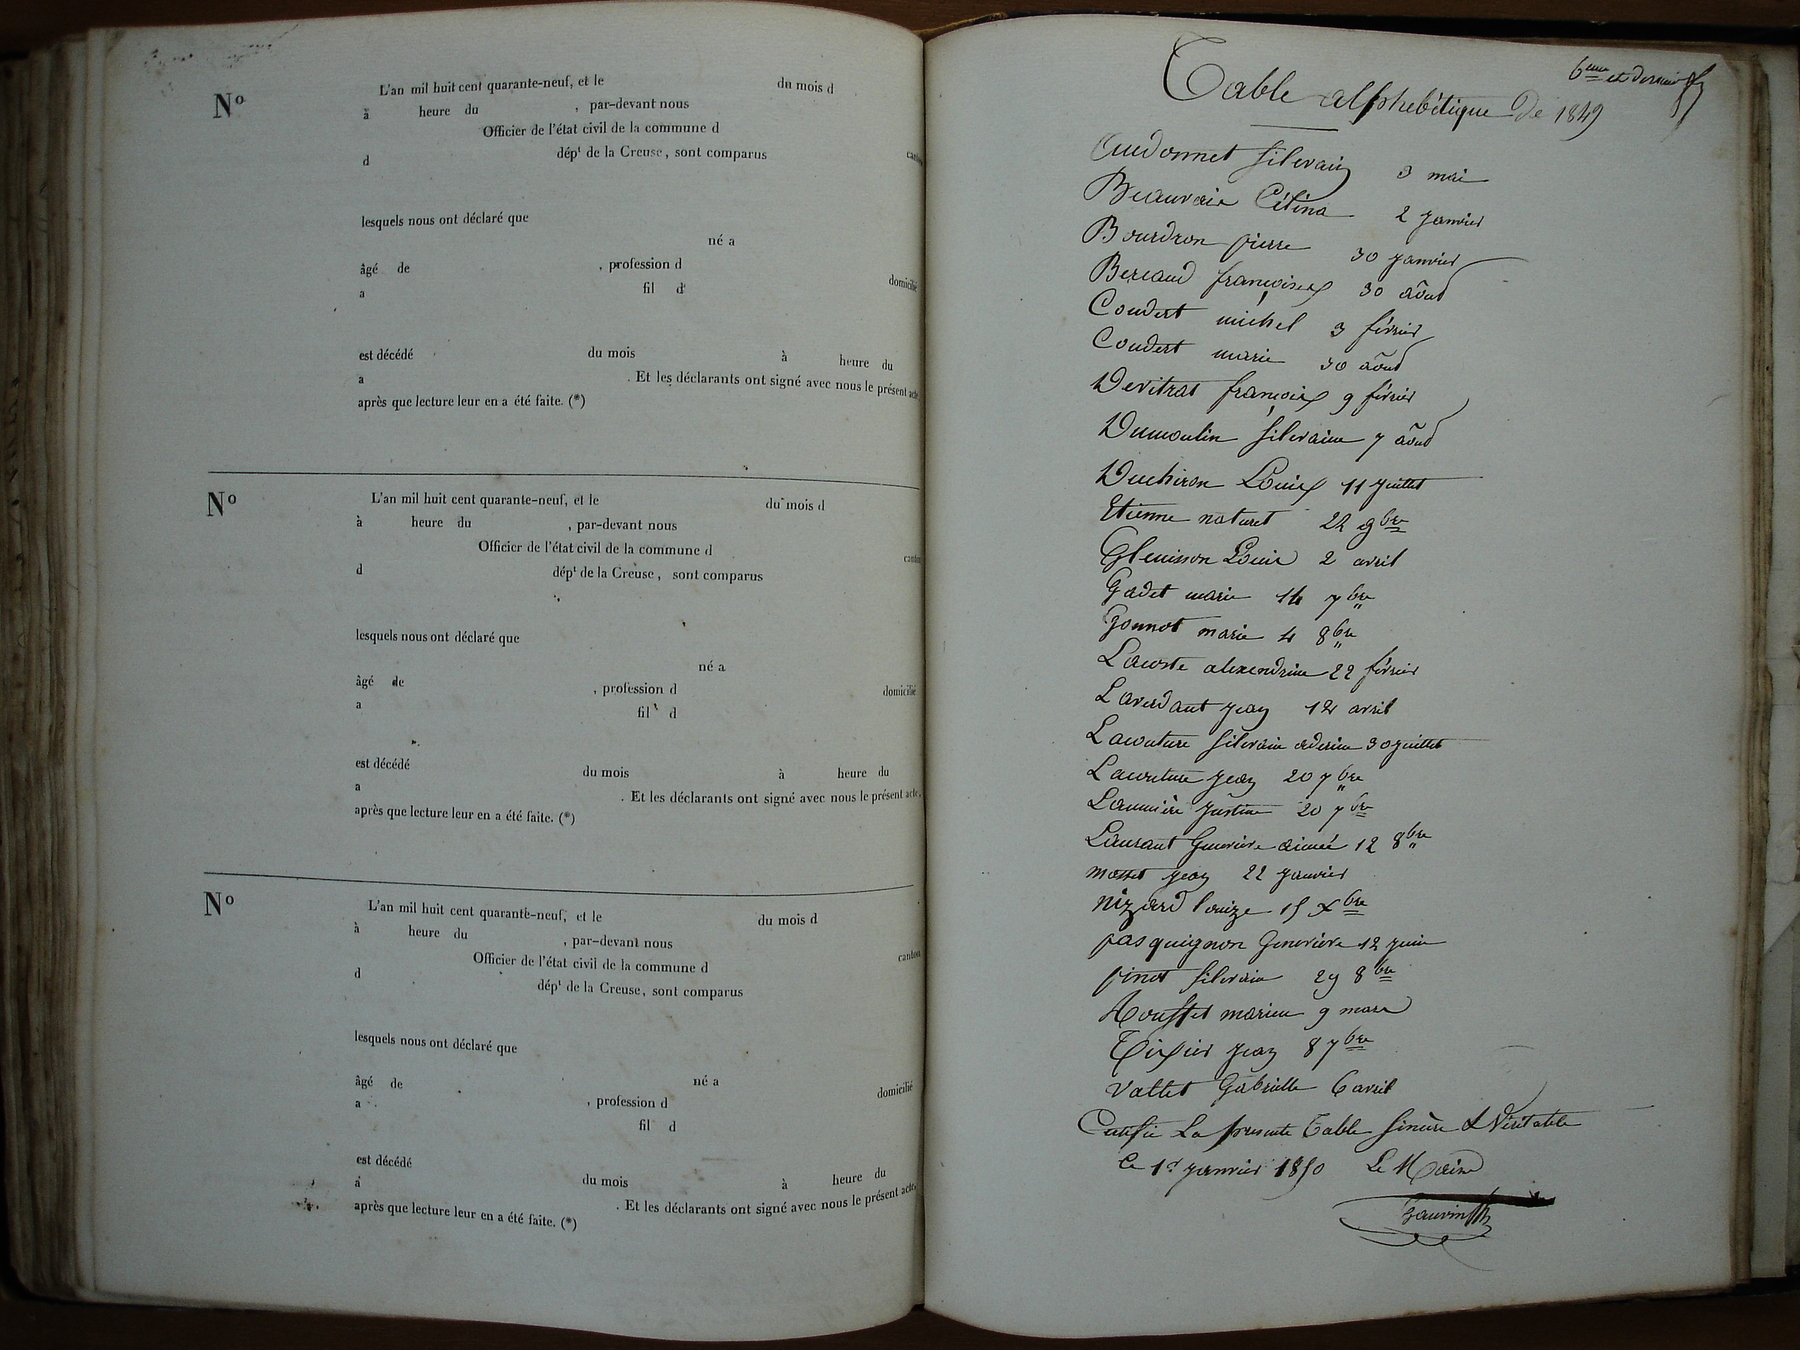 Nº
L'an mil huit cent quarante-neuf, et le du mois d
à heure du , par-devant nous
Officier de l'état civil de la commune d
d dépt de la Creuse, sont comparus canton
lesquels nous ont déclaré que
né a
âgé de , profession d domicilié
a fil d
est décédé du mois à heure du
a . Et les déclarants ont signé avec nous le présent acte
après que lecture leur en a été faite. (*)
Nº
L'an mil huit cent quarante-neuf, et le du mois d
à heure du , par-devant nous
Officier de l'état civil de la commune d
d dépt de la Creuse, sont comparus canton
lesquels nous ont déclaré que
né a
âgé de , profession d domicilié
a fil d
est décédé du mois à heure du
a . Et les déclarants ont signé avec nous le présent acte,
après que lecture leur en a été faite. (*)
Nº
L'an mil huit cent quarante-neuf, et le du mois d
à heure du , par-devant nous
Officier de l'état civil de la commune d
d dépt de la Creuse, sont comparus canton
lesquels nous ont déclaré que
né a
âgé de , profession d domicilié
a fil d
est décédé du mois à heure du
a . Et les déclarants ont signé avec nous le présent acte,
après que lecture leur en a été faite. (*)
6eme et dernier
Table alphebétique De 1849
Audonnet silvain 3 mai
Beauvais Célina 2 janvier
Bourdron pierre 30 janvier
Berçaud françoise 30 août
Coudert michel 3 février
Coudert marie 30 août
Devitrat françois 9 février
Dumoulin silvaine 7 août
Duchiron Louis 11 juillet
Etienne naturet 22 9bre
Glenisson Louis 2 avril
Gadet marie 14 7bre
Gonnot marie 4 8bre
Lacoste alexendrine 22 février
Laverdant jean 12 avril
Lacouture silvain 30 juillet
Lacouture jean 20 7bre
Laumière justine 20 7bre
Laurant Genevieve aimée 12 8bre
masset jean 22 janvier
nizard louize 15 Xbre
pasquignon Genevieve 12 juin
pinot silvain 29 8bre
Rousset marien 9 mars
Tixier jean 8 7bre
Vallet Gabrielle 6 avril
Certifié La presente Table sincère & Véritable
Ce 1er janvier 1850 Le Maire